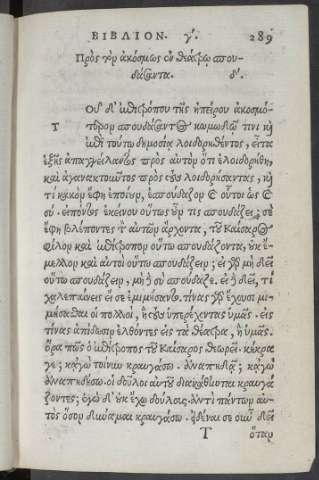 ΒΙΒΛΙΟΝ. γ΄. 289
Πρὸς τὸν ἀκόσμως ἐν θεάτρῳ σπου-
δάσαντα. δ΄.
ΟΥ δ᾽ ἐπιτρόπου τῆς ἠπείρου ἀκοσμό-
Τ τερον σπουδάσαντος κωμωδῷ τινὶ καὶ
ἐπὶ τούτῳ δημοσίᾳ λοιδορηθέντος, εἶτα
ἑξῆς ἀπαγγείλαντος πρὸς αὐτὸν ὅτι ἐλοιδορήθη,
καὶ ἀγανακτοῦντος πρὸς τοὺς λοιδορήσαντας, καὶ
τί κακὸν ἔφη ἐποίουν, ἐσπούδαζον καὶ οὗτοι ὡς καὶ
σύ. εἰπόντος ἐκείνου οὕτως οὖν τις σπουδάζει; σὲ
ἔφη βλέποντες τὸν αὑτῶν ἄρχοντα, τοῦ Καίσαρος
φίλον καὶ ἐπίτροπον οὕτω σπουδάζοντα, οὐκ ἔ-
μελλον καὶ αὐτοὶ οὕτω σπουδάζειν; εἰ γὰρ μὴ δεῖ
οὕτω σπουδάζειν, μὴ σὺ σπούδαζε. εἰ δεῖ, τί
χαλεπαίνεις εἴ σε ἐμιμήσαντο. τίνας γὰρ ἔχουσι μι-
μήσασθαι οἱ πολλοὶ, ἢ τοὺς ὑπερέχοντας ὑμᾶς. εἰς
τίνας ἀπίδωσιν ἐλθόντες εἰς τὰ θέατρα, ἢ ὑμᾶς.
ὅρα πῶς ὁ ἐπίτροπος τοῦ Καίσαρος θεωρεῖ. κέκρα
γε; κἀγὼ τοίνυν κραυγάσω. ἀναπηδᾷ; κἀγὼ
ἀναπηδήσω. οἱ δοῦλοι αὐτοῦ διακάθηνται κραυγά
ζοντες; ἐγὼ δ᾽ οὐκ ἔχω δούλους. ἀντὶ πάντων αὐ-
τὸς ὅσον δύναμαι κραυγάσω. εἰδέναι σε οὖν δεῖ
Τ ὅταν